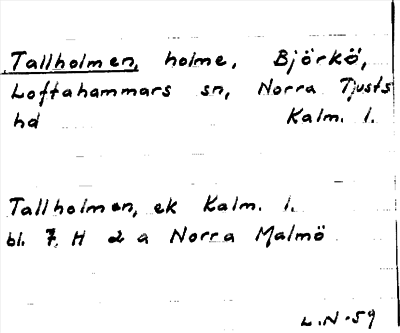 Tallholmen, holme, Björkö,
Loftahammars sn, Norra Tjusts
hd Kalm. l.
Tallholmen, ek Kalm. l.
bl. 7 H d a Norra Malmö
L.N-59